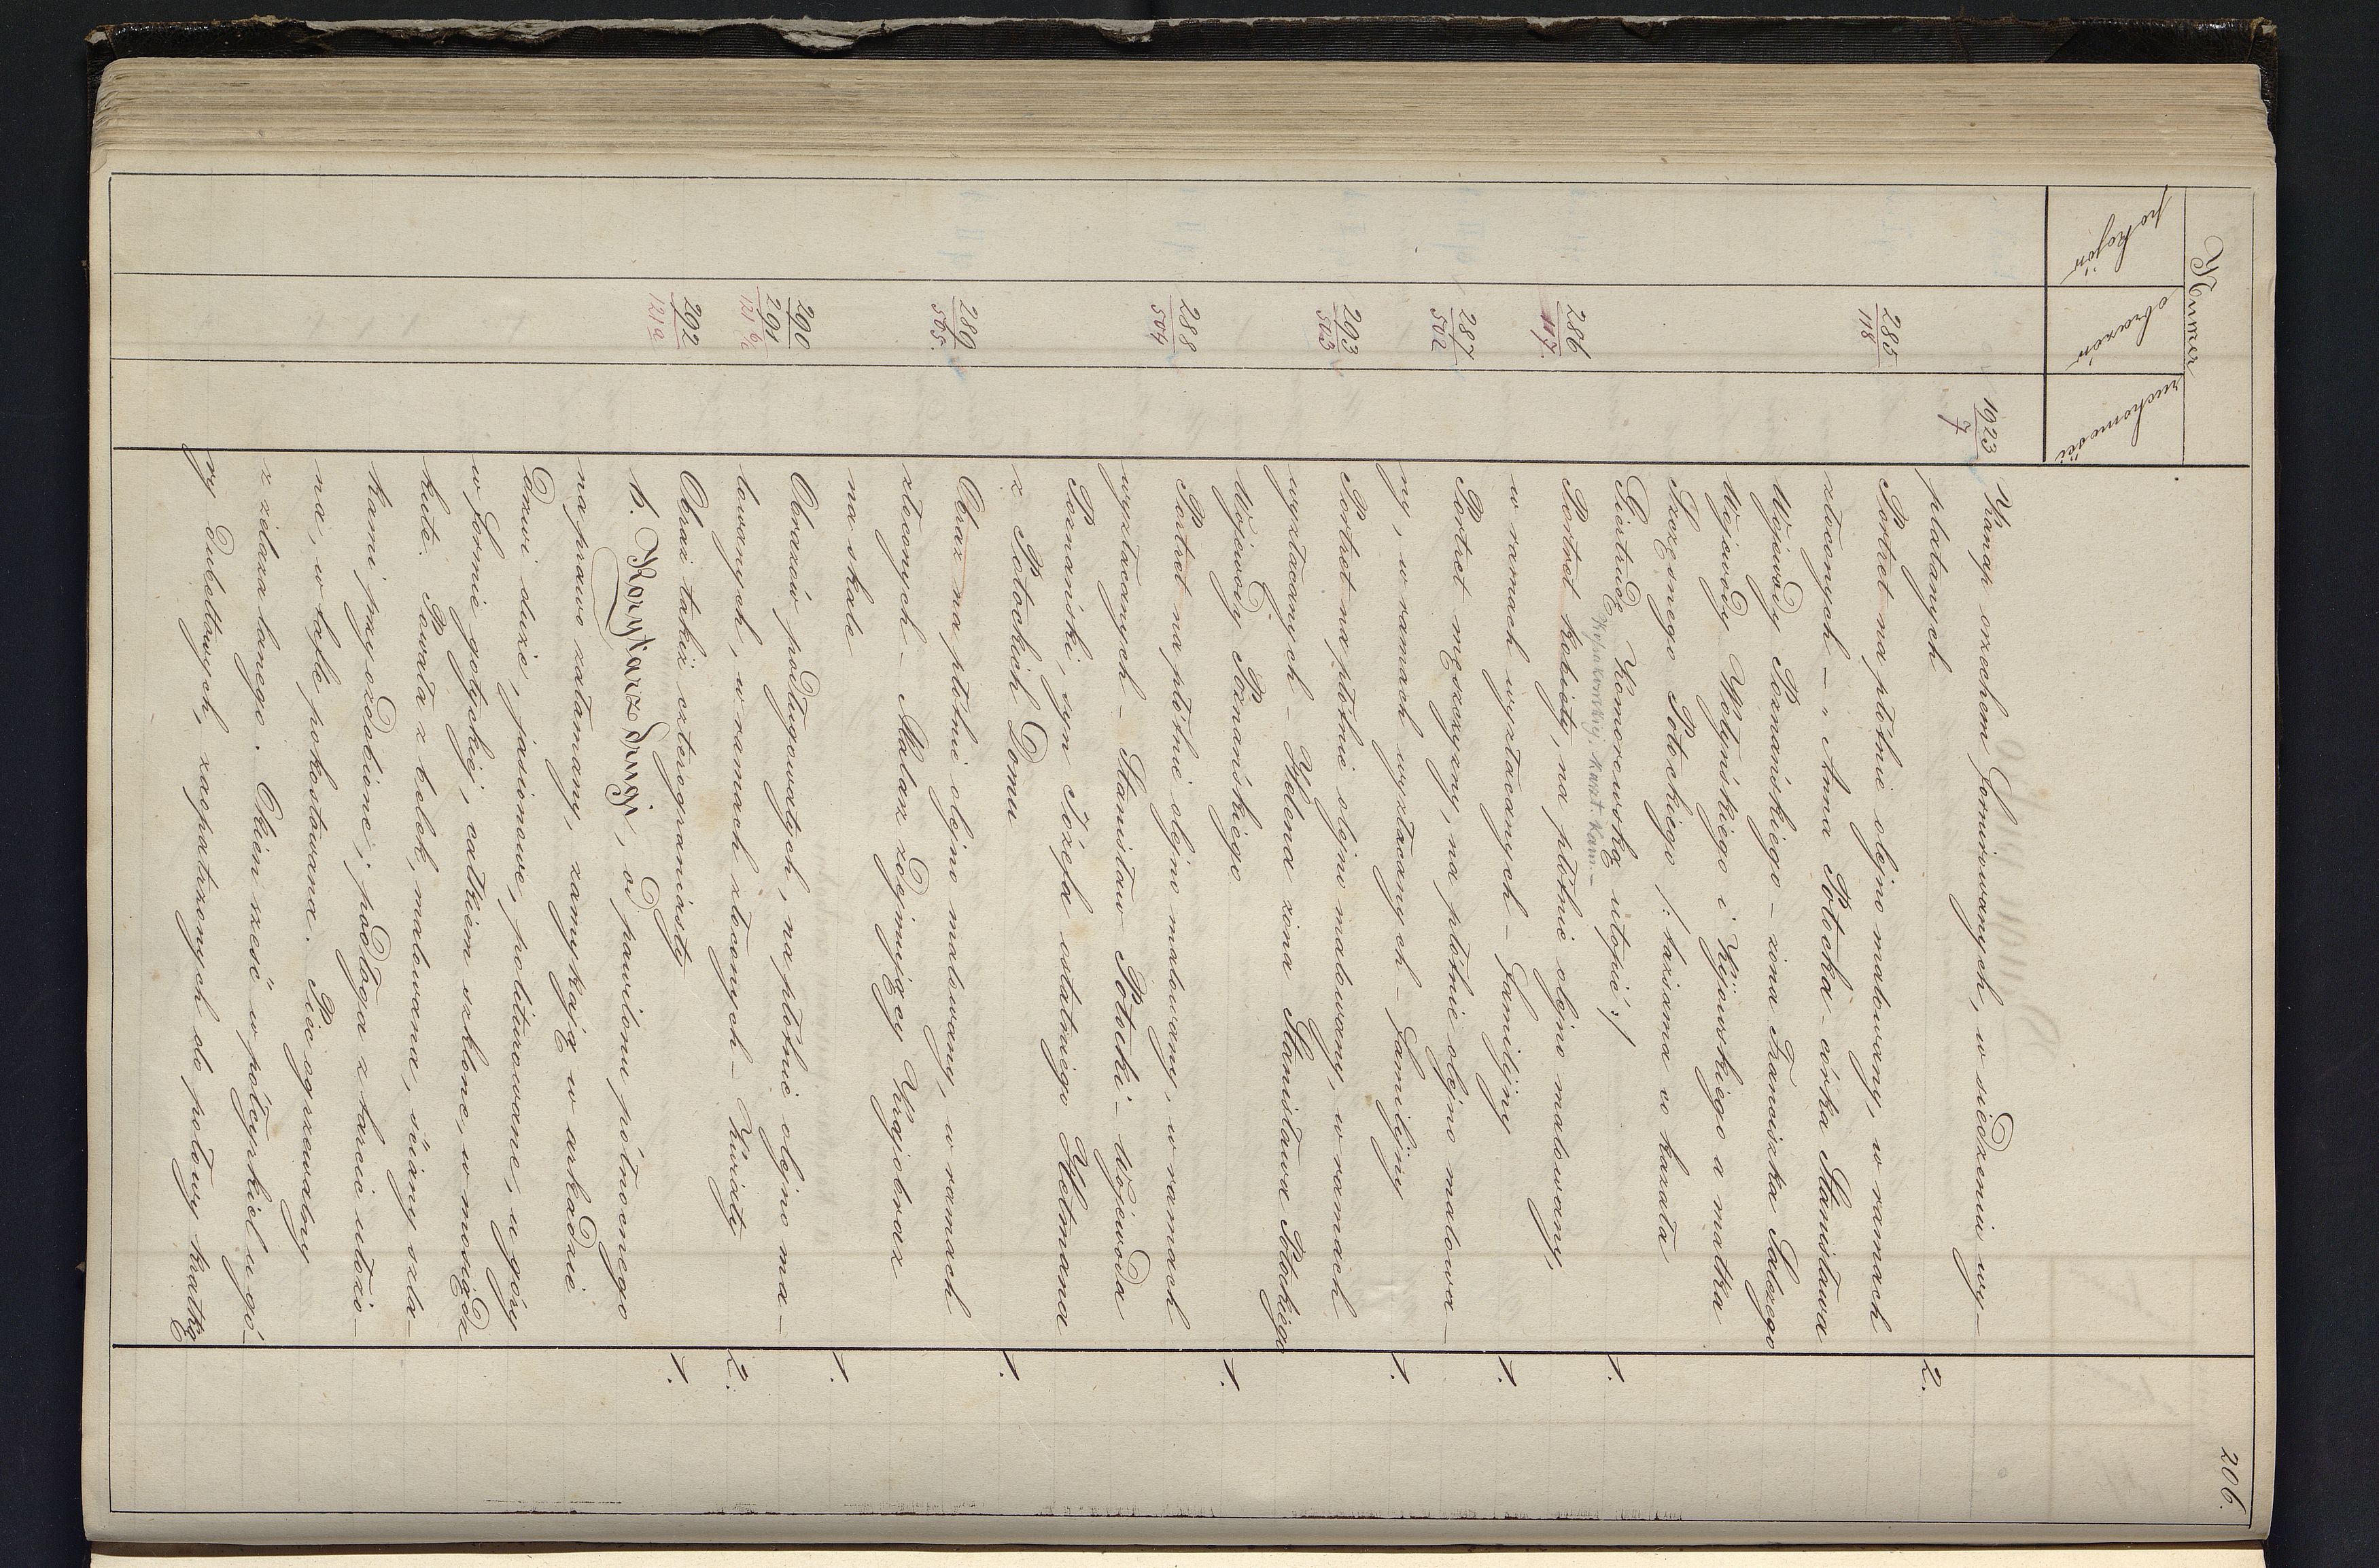 206.
Numer
pokojów
obrazów
ruchomości
1923
7
Kanap orzechem fornirowanych, w siedzeniu wy-
platanych
2.
285
118
Portret na płótnie olejno malowany, w ramach
złoconych - Anna Potocka - córka Stanisława
Wojewody Poznańskiego - żona Franciszka Salezego
Wojewody Wołyńskiego i Kijowskiego a matka
Szczęsnego Potockiego /: taż sama co kazała
Giertrudę Komorowską utopić :/
1.
kaszt. kam-
286
117.
Portret kobiety, na płótnie olejno malowany,
w ramach wyzłacanych - familijny
1.
287
502
Portret mężczyzny, na płótnie olejno malowa-
ny, w ramach wyzłacanych - familijny
1.
293
503
Portret na płótnie olejno malowany, w ramach
wyzłacanych - Helena żona Stanisława Potockiego
Wojewody Poznańskiego
1.
288
504
Portret na płótnie olejno malowany, w ramach
wyzłacanych - Stanisław Potocki - Wojewoda
Poznański, syn Józefa ostatniego Hetmana
z Potockich Domu
1.
289
505.
Obraz na płótnie olejno malowany, w ramach
złoconych - Malarz zdejmujący Krajobraz
na skale
1.
290
291
121 b/c
Obrazów podługowatych, na płótnie olejno ma-
lowanych, w ramach złoconych - Kwiaty
2.
292
121 a
Obraz takiż czterograniasty
1.
k. Korytarz długi, od pawilonu północnego
na prawo załamany, zamykają w arkadzie
drzwi duże, jasionowe, politurowane, u góry
w formie gotyckiej, całkiem szklone, w mosiądz
kute. Powała z belek, malowana, ściany szla-
kami przyozdobione; podłoga z tarcic ułożo-
na, w tafle pokostowana. Piec ogrzewalny
z żelaza lanego. Okien sześć w półcyrkiel u gó-
ry dubeltowych, zaopatrzonych do połowy kratką